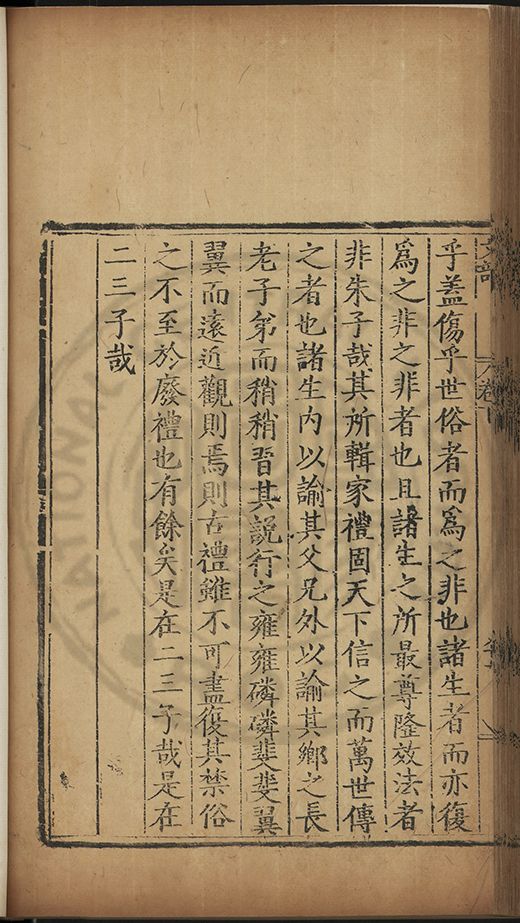 乎蓋傷乎世俗者而爲之非也諸生者而亦復
爲之非之非者也且諸生之所最尊隆效法者
非朱子哉其所輯家禮固天下信之而萬世傳
之者也諸生内以諭其父兄外以諭其鄉之長
老子弟而稍稍習其說行之雍雍磷磷斐斐翼
翼而遠近觀則焉則古禮雖不可盡復其禁俗
之不至於廢禮也有餘矣是在二三子哉是在
二三子哉